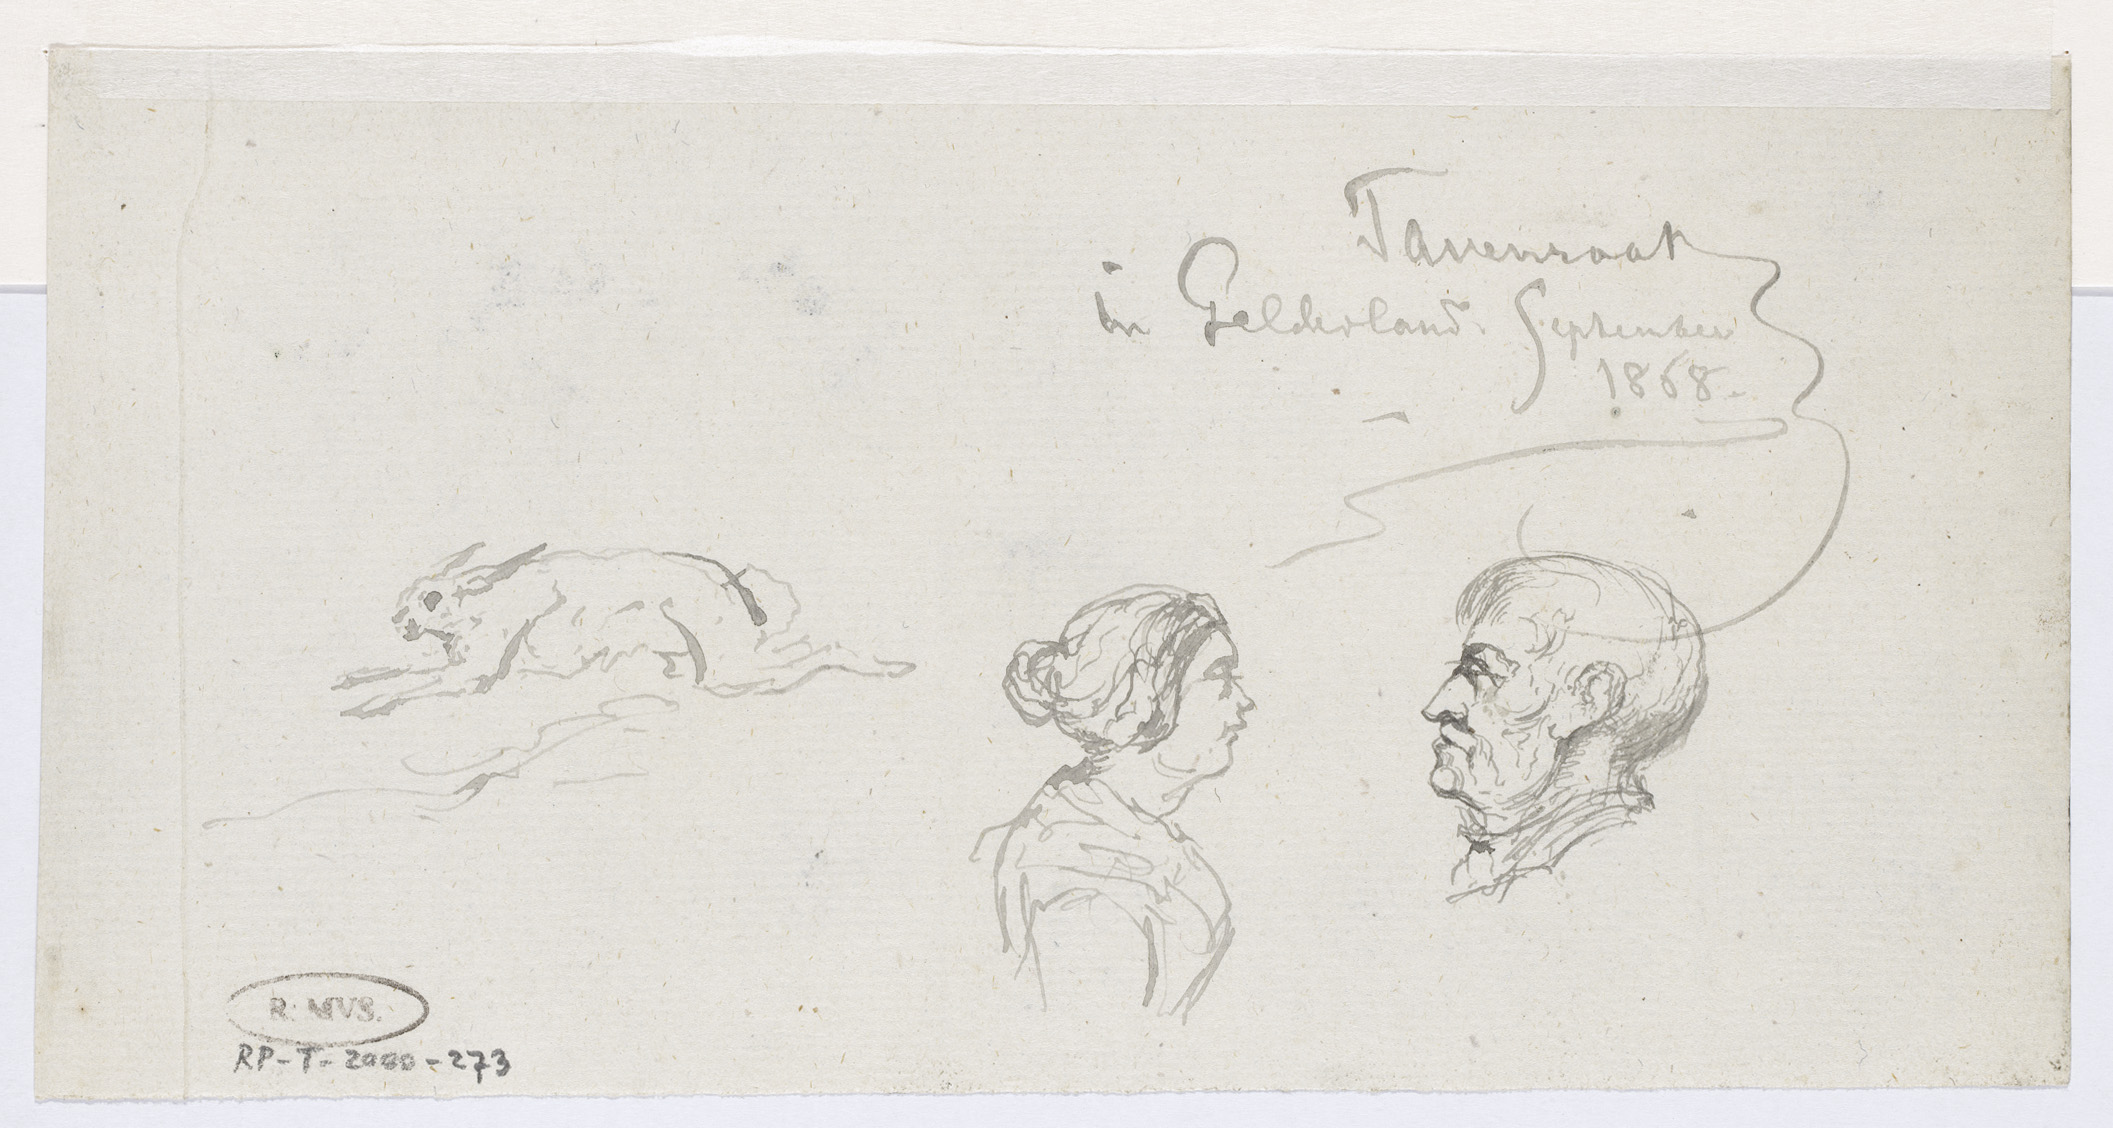 Tavenraat
in Gelderland. September
1868.
R. MVS.
RP-T-2000-273